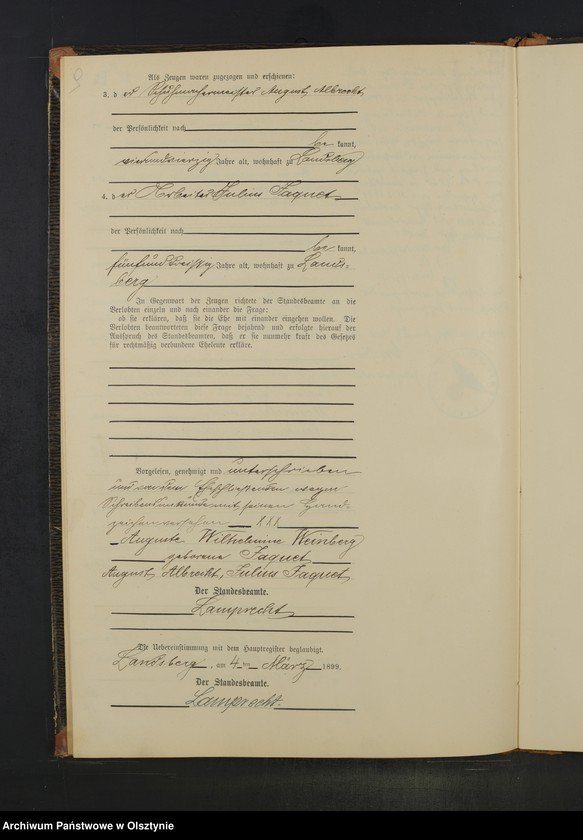 9
Als Zeugen waren zugezogen und erschienen:
3. der Schuhmachermeister August Albrecht
der Persönlichkeit nach
be kannt,
vierundvierzig Jahre alt, wohnhaft zu Landsberg
4. der Arbeiter Julius Jaquet
der Persönlichkeit nach
be kannt,
fünfunddreißig Jahre alt, wohnhaft zu Lands-
berg
In Gegenwart der Zeugen richtete der Standesbeamte an die
Verlobten einzeln und nach einander die Frage:
ob sie erklären, daß sie die Ehe mit einander eingehen wollen. Die
Verlobten beantworteten diese Frage bejahend und erfolgte hierauf der
Ausspruch des Standesbeamten, daß er sie nunmehr kraft des Gesetzes
für rechtmäßig verbundene Eheleute erkläre.
Vorgelesen, genehmigt und unterschrieben
und von dem Eheschließenden wegen
Schreibensunkunde mit seinen Hand-
zeichen versehen XXX
Auguste Wilhelmine Weinberg
geborene Jaquet
August Albrecht, Julius Jaquet
Der Standesbeamte.
Lamprecht
Die Uebereinstimmung mit dem Hauptregister beglaubigt.
Landsberg, am 4 ten März 1899.
Der Standesbeamte.
Lamprecht.
Archiwum Państwowe w Olsztynie